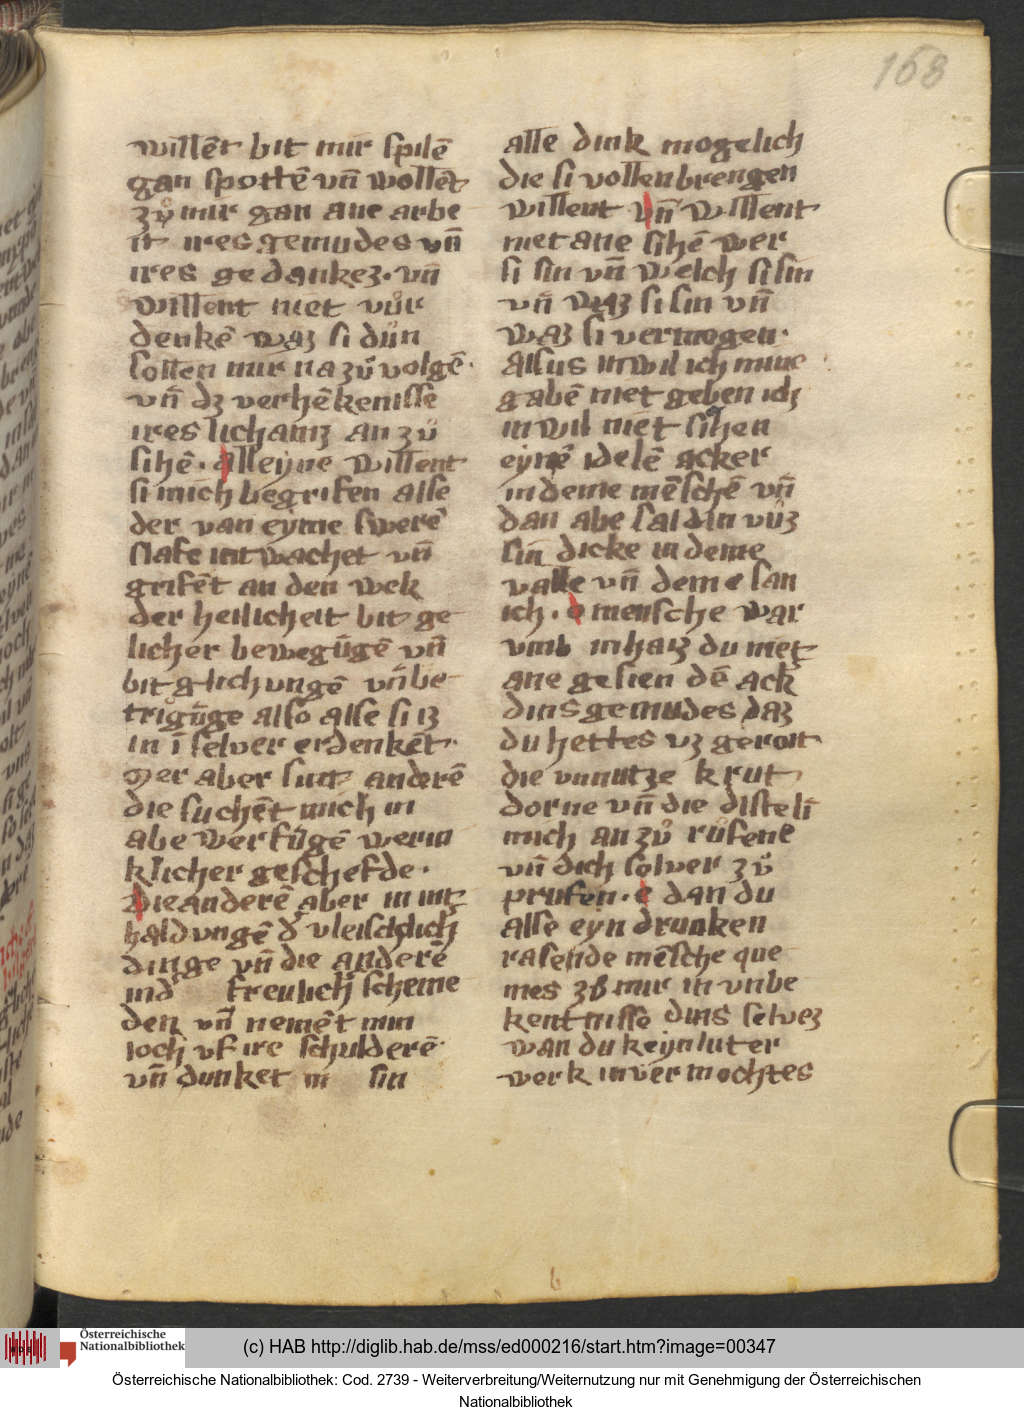 168
willēt bit mir spilē
gan spottē vn̄ wollēt
zů mir gan ane arbe
it ires gemudes vn̄
ires gedankez · vn̄
willent niet vůr
denkē waz si důn
sollen mir na zů volgē ·
vn̄ dz verhēkenisse
ires lichamz an zů
sihē · alleyne willent
si mich begrifen alse
der van eyme swerē
slafe int wachet vn̄
grifēt an den wek
der heilicheit bit ge
licher bewegūgē vn̄
bit glich vngē vn̄ be
trigūge also alse si iz
in ī selver erdenkēt ·
Mer aber sint anderē
die suchēt mich in
abe werfūgē werin
klicher geschefde ·
Die anderē aber in int
haldvngē d̄ vleischlich
dinge vn̄ die anderē
ind̄ freulich scheme
den vn̄ nemēt min
ioch vf ire schulderē ·
vn̄ dunket in sin
alle dink mogelich
die si vollenbrengen
willent vn̄ willent
niet ane sihē wer
si sin vn̄ welch si sin
vn̄ waz si sin vn̄
waz si vermogen ·
Alsus inwil ich mine
gabē niet geben ich
inwil niet sihen
eynē idelē acker
in deme mēschē vn̄
dan abe sal din vůz
sin dicke in deme
valle vn̄ deme san
ich · o mensche war
vmb inhaiz du niet
ane gesien dē ack
dins gemudes daz
du hettes vz geroit
die vnnutze krut
dorne vn̄ die disteli
mich an zů růfene
vn̄ dich selver zů
prufen · e dan du
alse eyn drunken
rasende mēsche que
mes zů mir in vnbe
kentnisse dins selvez
wan du keyn luter
werk in vermochtes
Österreichische
Nationalbibliothek
(c) HAB http://diglib.hab.de/mss/ed000216/start.htm?image=00347
Österreichische Nationalbibliothek: Cod. 2739 - Weiterverbreitung/Weiternutzung nur mit Genehmigung der Österreichischen
Nationalbibliothek